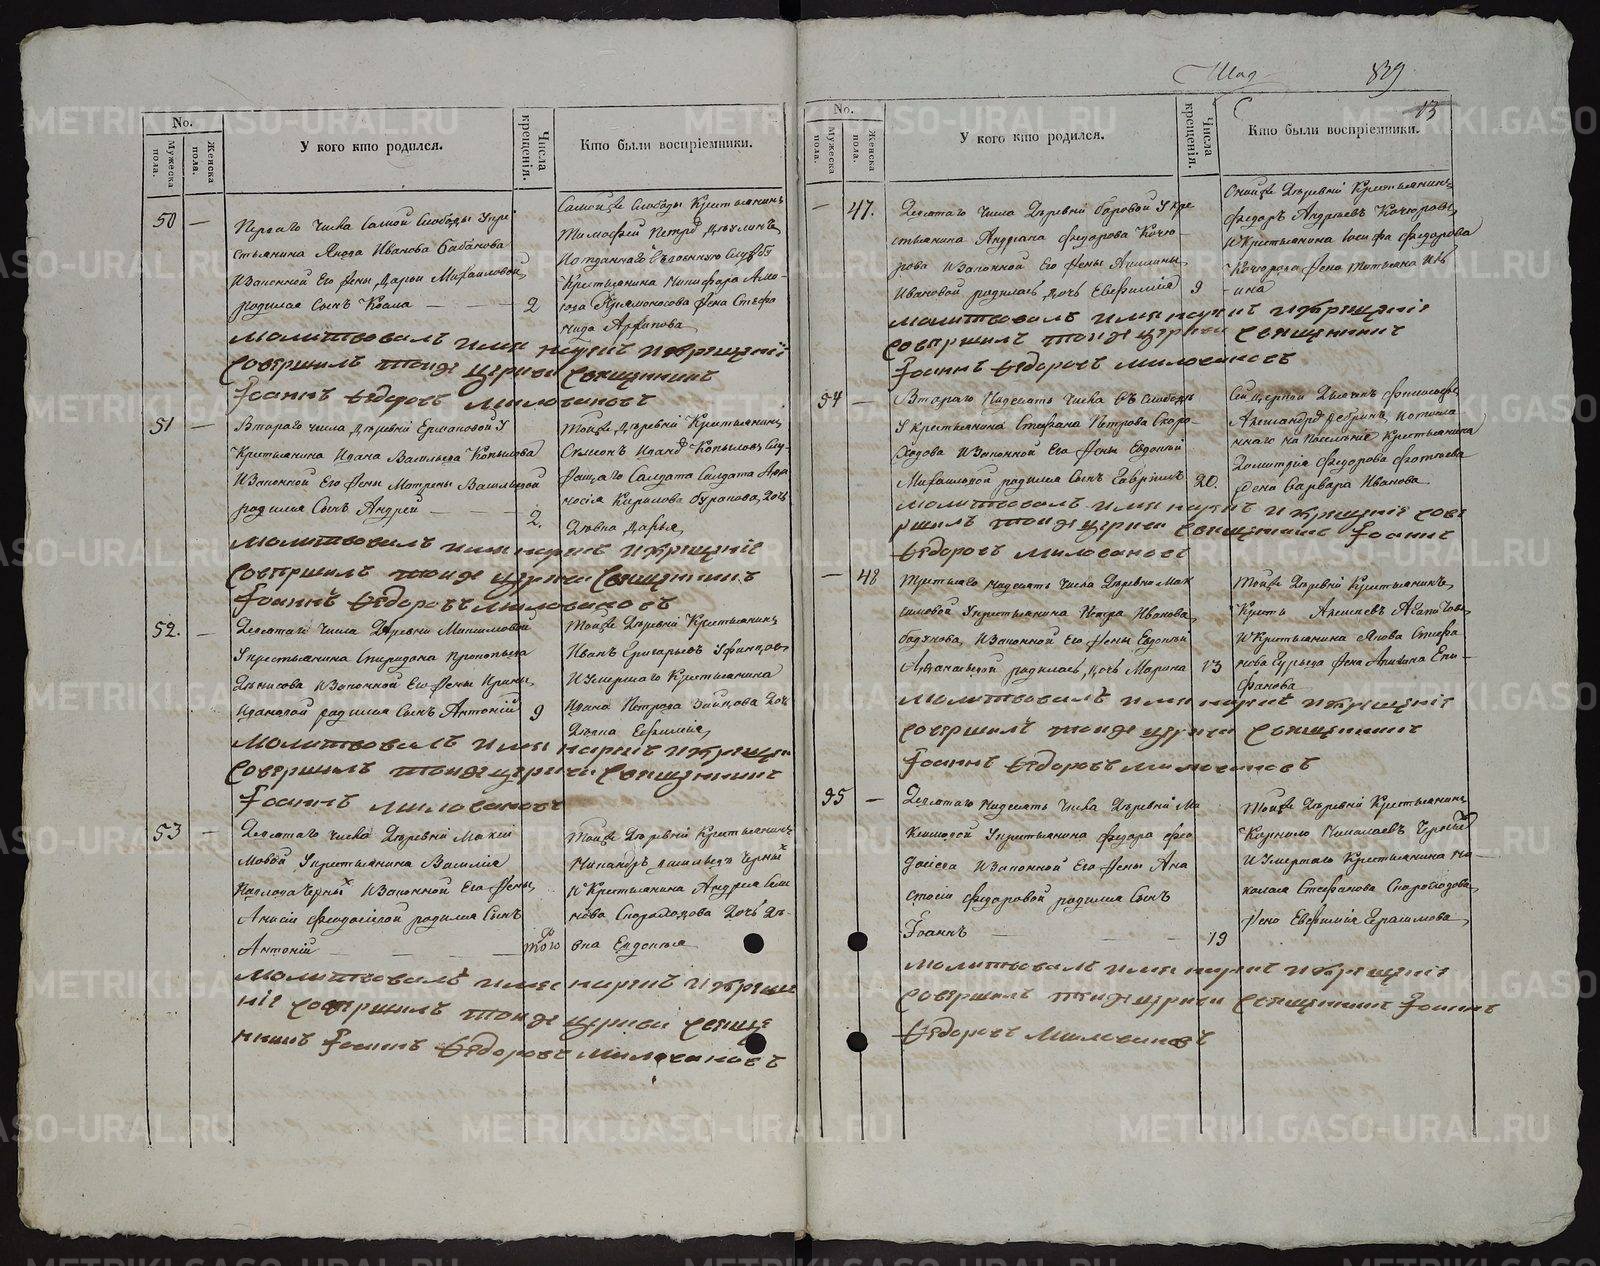 No.
Мужеска пола.
Женска пола.
У кого кто родился.
Числа крещенія.
Кто были воспріемники.
50 —
Перваго числа самой слободы у кре
стьянина Якова Иванова Бабанова
и законной его жены Дарьи Михаиловой
родился сынъ Козма — 2
Самойже слободы крестьянинъ
Тимофей
крестьянина Никифора
жена Стефа
нида
молитвовалъ имя нарекъ и крещеніе
совершилъ тойже церкви священникъ
Іоаннъ Ѳедоровъ Миловановъ
51 —
Втораго числа деревни Ермаковой у
крестьянина Ивана Васильева Копылова
и законной его жены Матрены Васильевой
родился сынъ Андрей — 2.
Тойже деревни крестьянинъ
Копыловъ
солдата
Кирилова Буранова дочь
девка Дарья
молитвовалъ имя нарекъ и крещеніе
совершилъ тойже церкви священникъ
Іоаннъ Ѳедоровъ Миловановъ
52. —
Девятаго числа деревни Максимовой
у крестьянина Спиридона Прокопьева
Денисова и законной его жены Ирины
Ивановой родился сынъ Антоній 9
Тойже деревни крестьянинъ
Иванъ Григорьевъ
и умершаго крестьянина
Ивана Петрова Зайкова дочь
девка Евфимія
молитвовалъ имя нарекъ и крещен
совершилъ тойже церкви священникъ
Іоаннъ Миловановъ
53 —
Девятаго числа деревни Макси
мовой у крестьянина Василія
Павлова Черныхъ и законной его жены
Анисіи Феодосіевой родился сынъ
Антоній — тогож
Тойже деревни крестьянинъ
Никандръ Васильевъ Черныхъ
и крестьянина Андрея Семе
нова дочь де-
вка Евдокія
молитвовалъ имя нарекъ и креще
ніе совершилъ тойже церкви свяще
нникъ Іоаннъ Ѳедоровъ Миловановъ
Шад
829
13
No.
Мужеска пола.
Женска пола.
У кого кто родился.
Числа крещенія.
Кто были воспріемники.
— 47.
Девятаго числа деревни Боровой у кре
стьянина Андріана Федорова Кочю-
рова и законной его жены Акилины
Ивановой родилась дочь Евфимія 9
Оной же деревни крестьянинъ
Федоръ Андреевъ Кочюровъ
и крестьянина Іосифа Федорова
Кочюрова жена Татьяна Иль
ина
молитвовалъ имя нарекъ и крещеніе
совершилъ тойже церкви священникъ
Іоаннъ Ѳедоровъ Миловановъ
54 —
Втораго надесять числа въ слободе
у крестьянина Стефана Петрова Скоро-
ходова и законной его жены Евдокіи
Михаиловой родился сынъ Гавріилъ 20.
Сей церкви
Александръ
крестьянина
Димитрія Федорова
жена Варвара Иванова
молитвовалъ имя нарекъ и крещеніе сове
ршилъ тойже церкви священникъ Іоаннъ
Ѳедоровъ Миловановъ
— 48
Третьяго надесять числа деревни Мак
симовой у крестьянина Петра Иванова
и законной его жены Евдокіи
Афанасьевой родилась дочь Марина 13
Тойже деревни крестьянинъ
Алексеевъ
и крестьянина Якова Стефа
нова жена Акилина Епи-
фанова
молитвовалъ имя нарекъ и крещеніе
совершилъ тойже церкви священникъ
Іоаннъ Ѳедоровъ Миловановъ
55 —
Девятаго надесять числа деревни Ма
ксимовой у крестьянина Федора Фео
досіева и законной его жены Ана
стасіи Федоровой родился сынъ
Іоаннъ — 19
Тойже деревни крестьянинъ
Корнило Николаевъ Черныхъ
и умершаго крестьянина Ни-
колая Стефанова Скороходова
жена Евфимія Герасимова
молитвовалъ имя нарекъ и крещеніе
совершилъ тойже церкви священникъ Іоаннъ
Ѳедоровъ Миловановъ
METRIKI.GASO-URAL.RU